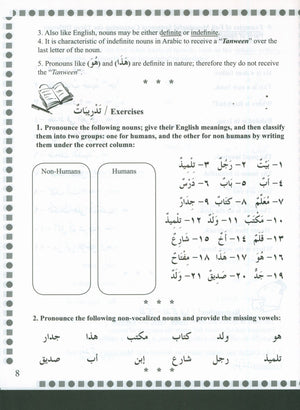 3. Also like English, nouns may be either definite or indefinite.
4. It is characteristic of indefinite nouns in Arabic to receive a "Tanween" over the
last letter of the noun.
5. Pronouns like (هُوَ) and (هَذَا) are definite in nature; therefore they do not receive
the "Tanween".
* * *
تَدْرِيبَاتٌ / Exercises
1. Pronounce the following nouns; give their English meanings, and then classify
them into two groups; one for humans, and the other for non humans by writing
them under the correct column:
Non-Humans Humans
١- بَيْتٌ ٢- رَجُلٌ ٣- تِلْمِيذٌ
٤- أَبٌ ٥- بَابٌ ٦- دَرْسٌ
٧- مُعَلِّمٌ ٨- كِتَابٌ ٩- جِدَارٌ
١٠- مَكْتَبٌ ١١- وَلَدٌ ١٢- تِلْمِيذٌ
١٣- قَلَمٌ ١٤- أَخٌ ١٥- شَارِعٌ
١٦- هُوَ ١٧- هَذَا ١٨- مِفْتَاحٌ
١٩- جَدٌّ ٢٠- صَدِيقٌ ٢١- وَلَدٌ
* * *
2. Pronounce the following non-vocalized nouns and provide the missing vowels:
هو ولد كتاب مكتب هذا جدار
تلميذ رجل شارع إبن أب صديق
* * *
8